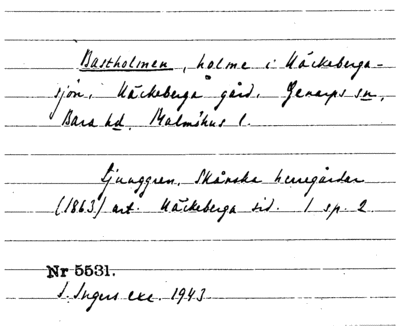 Bastholmen, holme i Häckeberga-
sjön, Häckeberga gård. Genarps sn,
Bara hd. Malmöhus l.
Ljunggren, Skånska herregårdar
(1863) art. Häckeberga sid. 1 sp. 2
Nr 5531.
I. Ingers exc. 1943